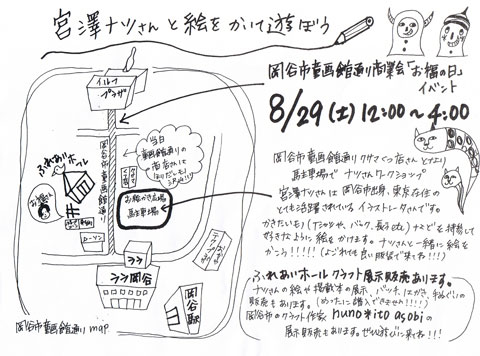 宮澤ナツさんと絵をかいて遊ぼう
岡谷市童画館通り商業会「お福の日」
イベント
8/29(土)12:00〜4:00
岡谷市童画館通り
駐車場でナツさんワークショップ
宮澤ナツさんは岡谷市出身、東京在住の
とても活躍されているイラストレータさんです。
かきたいもの(Tシャツや、バック、長ぐつetc)などを持参して
好きなように絵をかけます。ナツさんと一緒に絵を
かこう!!!!!(よごれても良い服装で来てね!!!)
ふれあいホール クラフト展示販売あります。
ナツさんの絵や掲載本の展示、バッチ、ハエガキ、手ぬぐいの
販売もあります。(めったに購入できません!!!!)
岡谷市のクラフト作家 nuno*ito asobiの
展示販売もあります。ぜひ遊びに来てね!!!
イルフ
プラザ
岡谷市童画館通り
ふれあいホール
当日
童画館通りの
商店さんは
お絵かき広場
駐車場
ローソン
ララ
ララ岡谷
岡谷駅
岡谷市童画館通りmap